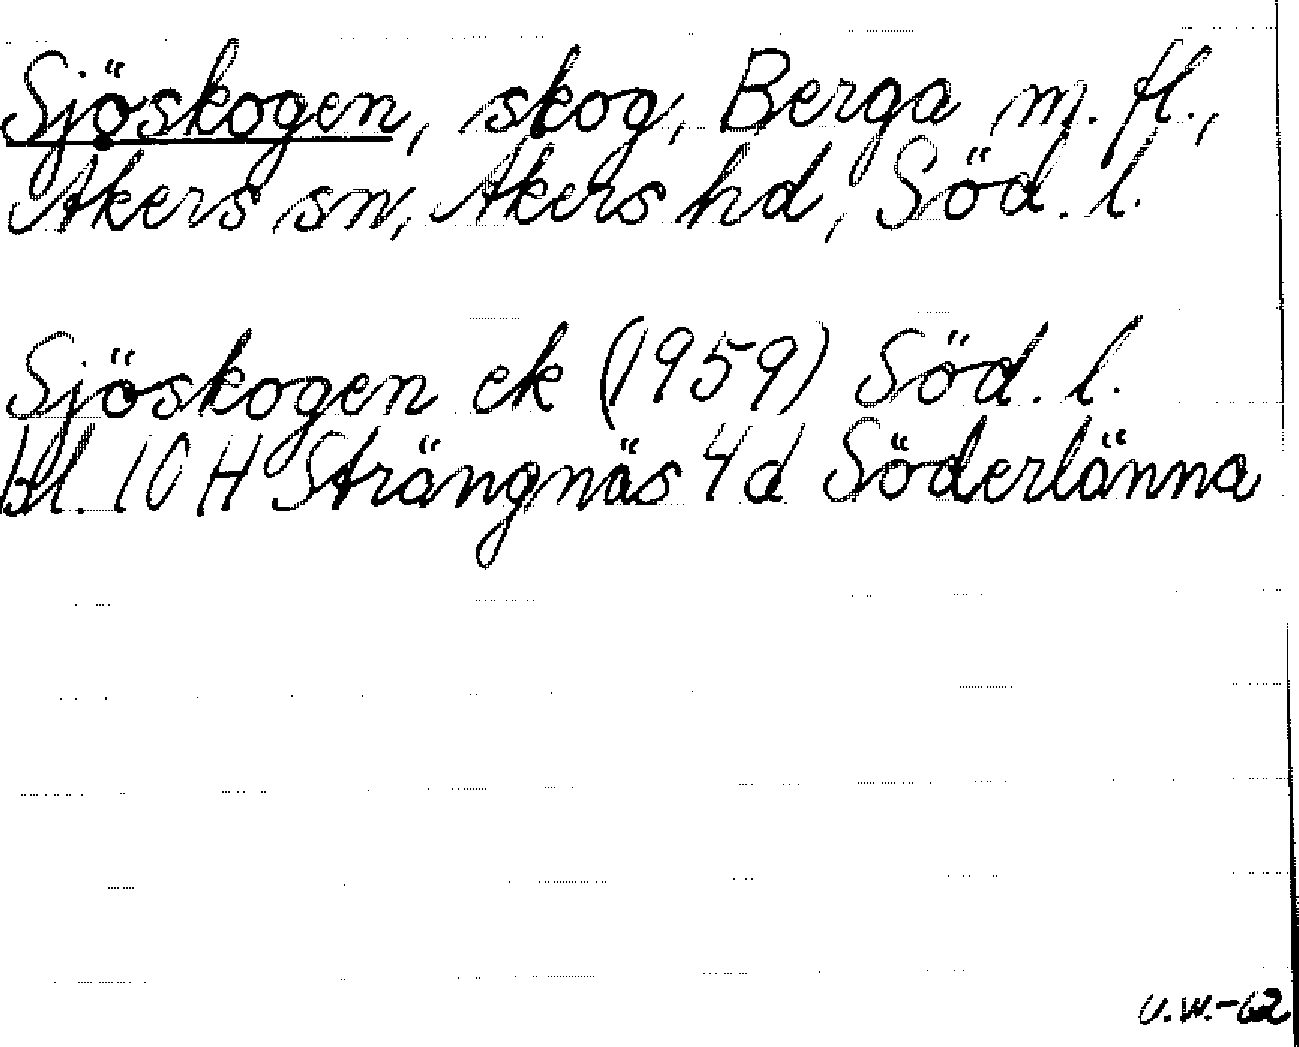 Sjöskogen, skog, Berga m. fl.,
Åkers sn, Åkers hd, Söd. l.
Sjöskogen ek (1959) Söd. l.
bl. 10 H Strängnäs 4 d Söderlänna
U.W.-62